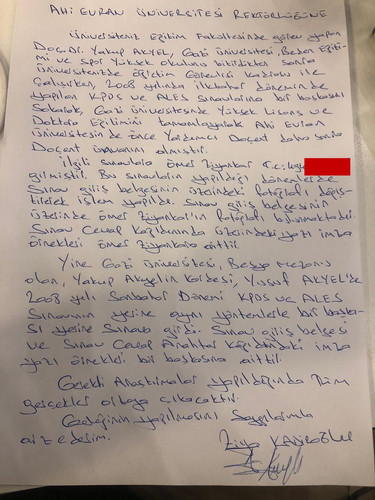 AHİ EVRAN ÜNİVERSİTESİ REKTÖRLÜĞÜNE
Üniversiteniz Eğitim Fakültesinde görev yapan
Doç.Dr. Yakup AKYEL, Gazi Üniversitesi, Beden Eğiti-
mi ve Spor Yüksek okulunu bitirdikten sonra
Üniversitenizde Öğretim Görevlisi Kadrosu ile
çalışırken, 2008 yılında ilkbahar döneminde
yapılan KPDS ve ALES sınavlarına bir başkasını
Sokarak, Gazi Üniversitesinde Yüksek Lisans ve
Doktor Eğitimini tamamlayarak Ahi Evran
Üniversitesin de önce Yardımcı Doçent daha sonra
Doçent ünvanını almıştır.
İlgili sınavlara Ömer Ziyankar T.C.
girmiştir. Bu sınavların yapıldığı dönemlerde
Sınav giriş belgesinin üzerindeki fotoğrafı değiş-
tirilerek işlem yapıldı. Sınav giriş belgesinin
üzerinde Ömer Ziyankar'ın fotoğrafı bulunmaktadır.
Sınav Cevap kağıdınında üzerindeki yazı imza
örnekleri Ömer Ziyankara aittir.
Yine Gazi Üniversitesi, Besyo Mezunu
olan, Yakup Akyelin kardeşi, Yusuf AKYEL'DE
2008 yılı Sonbahar Dönemi KPDS ve ALES
Sınavının yerine aynı yöntemlerle bir başka-
sı yerine Sınava girdi. Sınav giriş belgesi
ve Sınav Cevap Anahtar Kağıdındaki imza
yazı örnekleri bir başkasına aittir.
Gerekli Araştırmalar yapıldığında Tüm
gerçekler ortaya çıkacaktır.
Gereğinin yapılmasını Saygılarımla
arz ederim.
Ziya KADİROĞLU